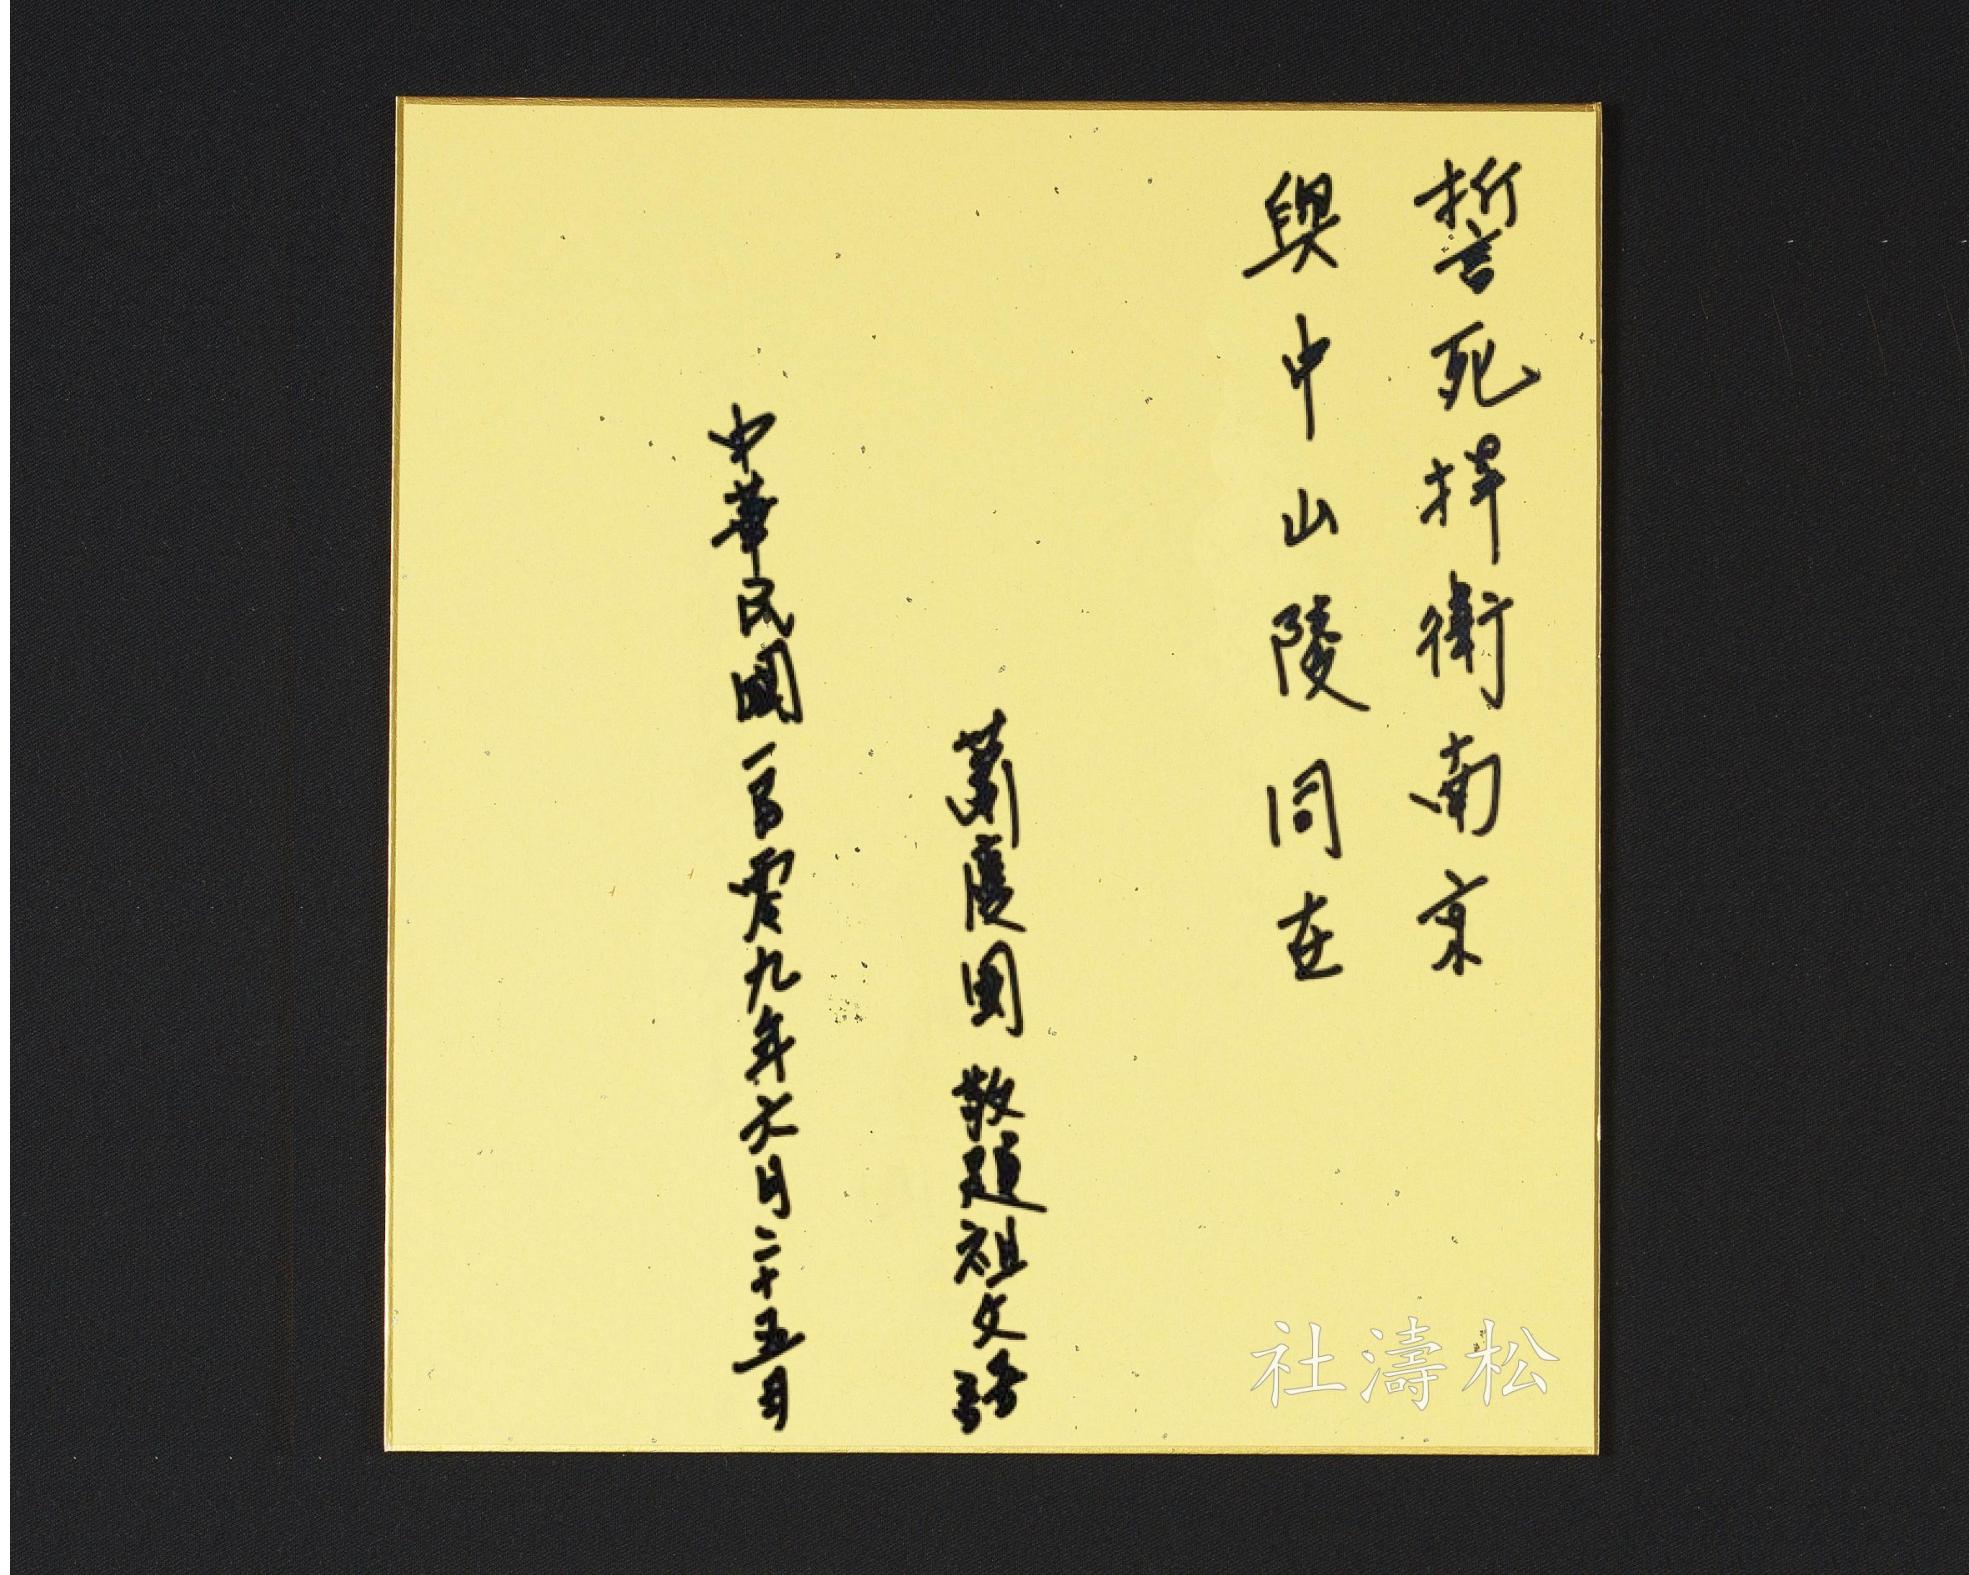 誓死捍衛南京
與中山陵同在
蕭慶國 敬題祖父語
中華民國一百零九年六月二十五日
松濤社